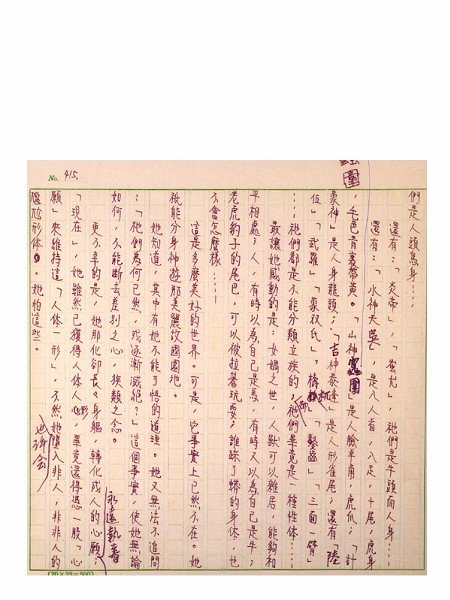 No. 415.
們是人頭馬身……
還有:「炎帝」、「蚩尤」,祂們是牛頭而人身……
還有:「水神天吳」,是八人首,八足,十尾,虎身
,毛色青裏帶黃。「山神
是人臉羊角,虎爪;「計
蒙神」是人身龍頭;「吉神泰逢」是人形雀尾,還有「陸
伍」「武羅」「象双氏」「檮杌」「鑿齒」「三面一臂」
……祂們都是不能分類立族的,祂們畢竟是一種性体……
最讓她感動的是:女媧之世,人獸可以雜居,能夠相
平相處;人,有時以為自己是馬,有時又以為自己是牛;
老虎豹子的尾巴,可以被拉著玩耍;誰踩了蟒的身體,也
不會怎麼樣……
這是多麼美好的世界。可是,它事實上已然不在。她
祇能分身神遊那美麗故國園地。
她知道,其中有她不能了悟的道理。她又無法不追問
:「祂們為何已然,或逐漸滅絕?」這個事實,使她無論
如何,不能斷去差別之心,族類之念。
永遠執着
更不幸的是,她那化卻長之身軀,轉化成人的心願;
「現在」,她雖然已獲得人体人形,畢竟還得憑一股「心
願」來維持達「人体一形」,不然她墮入非人、非非人的
尷尬形体。她怕這些。
也許會
(20×25=500)